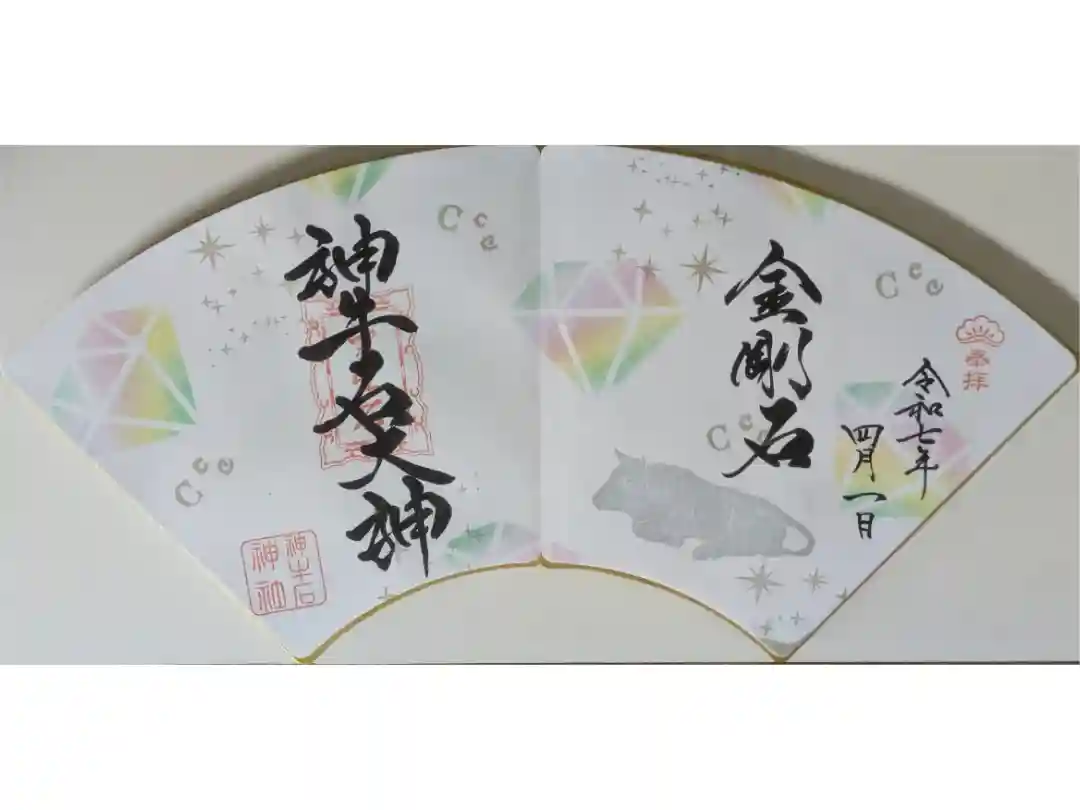 奉拝
令和七年
四月一日
金剛石
C c c
C c c
神牛石大神
C c c
C c c
神牛石
神社